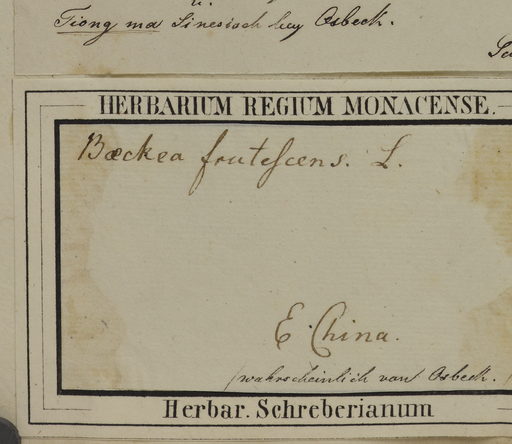 Tiong ma Sinesisch bey Osbeck.
HERBARIUM REGIUM MONACENSE.
Bæckea frutescens. L.
E China.
(wahrscheinlich von Osbeck.
Herbar. Schreberianum